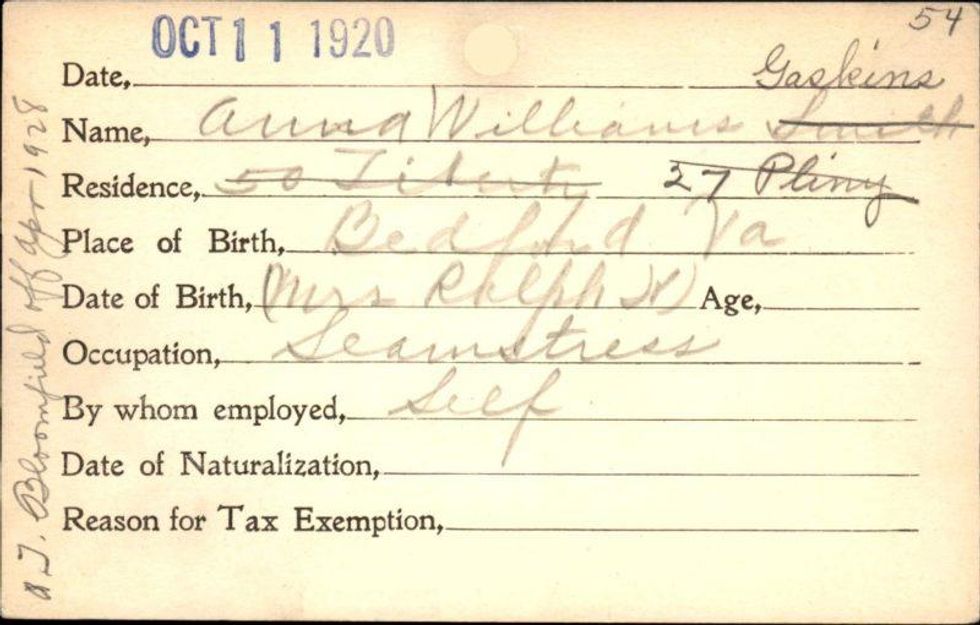 54
OCT 11 1920
Gaskins
Date,
Name, Anna Williams Smith
Residence, 50 Liberty 27 Pliny
Place of Birth, Bedford Va
Date of Birth, (Mrs Ralph W) Age,
Occupation, Seamstress
By whom employed, Self
Date of Naturalization,
Reason for Tax Exemption,
Bloomfield off Apr 1928